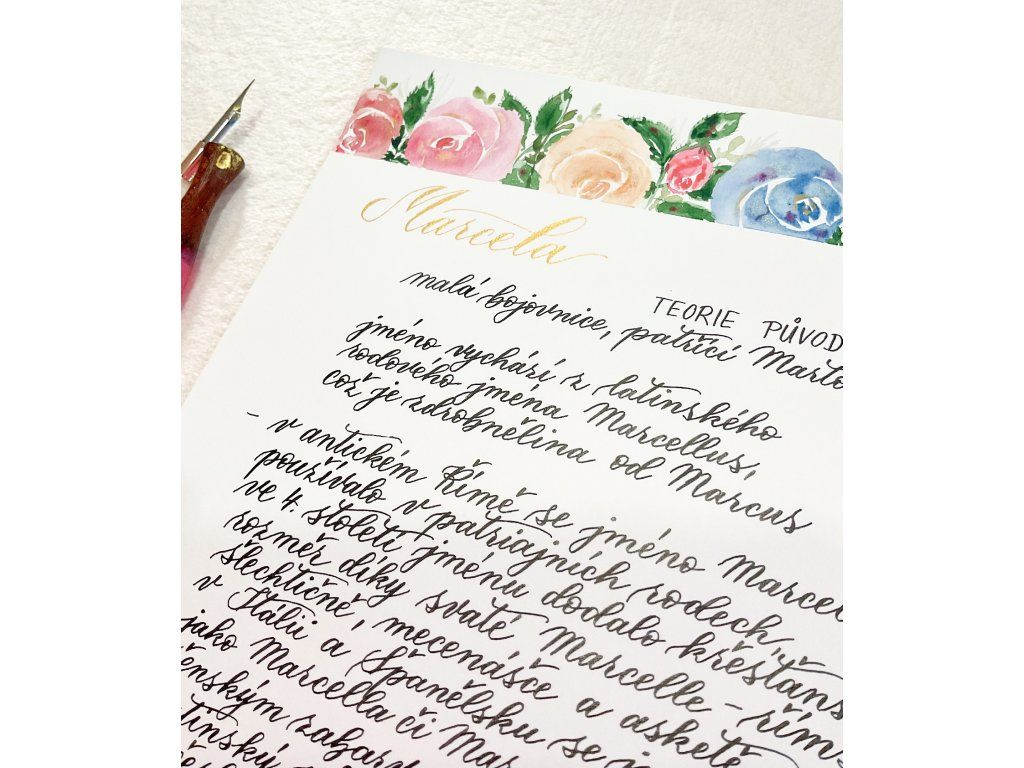 Marcela
TEORIE PŮVOD
malá bojovnice, patřící
jméno vychází z latinského
rodového jména Marcellus,
což je zdrobnělina od Marcus
- v antickém Římě se jméno Marcel
používalo v patriajních rodech,
ve 4. století jménu dodalo křesťans
rozměr díky svaté Marcelle - řím
šlechtičně, mecenášce a asketě
v Itálii a Španělsku se
jako Marcella či Mar